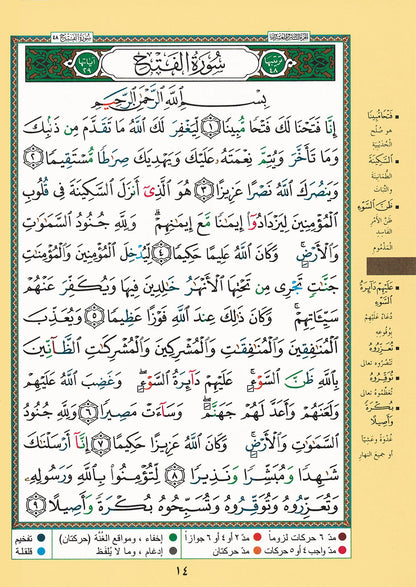 سُورَةُ الفَتْحِ ٤٨
ترتيبها ٤٨
سُورَةُ الفَتْحِ
آياتها ٢٩
بِسْمِ اللَّهِ الرَّحْمَٰنِ الرَّحِيمِ
إِنَّا فَتَحْنَا لَكَ فَتْحًا مُّبِينًا ١ لِّيَغْفِرَ لَكَ اللَّهُ مَا تَقَدَّمَ مِن ذَنۢبِكَ
وَمَا تَأَخَّرَ وَيُتِمَّ نِعْمَتَهُۥ عَلَيْكَ وَيَهْدِيَكَ صِرَٰطًا مُّسْتَقِيمًا ٢
وَيَنصُرَكَ اللَّهُ نَصْرًا عَزِيزًا ٣ هُوَ الَّذِىٓ أَنزَلَ السَّكِينَةَ فِى قُلُوبِ
الْمُؤْمِنِينَ لِيَزْدَادُوٓا۟ إِيمَٰنًا مَّعَ إِيمَٰنِهِمْ ۗ وَلِلَّهِ جُنُودُ السَّمَٰوَٰتِ
وَالْأَرْضِ ۚ وَكَانَ اللَّهُ عَلِيمًا حَكِيمًا ٤ لِّيُدْخِلَ الْمُؤْمِنِينَ وَالْمُؤْمِنَٰتِ
جَنَّٰتٍ تَجْرِى مِن تَحْتِهَا الْأَنْهَٰرُ خَٰلِدِينَ فِيهَا وَيُكَفِّرَ عَنْهُمْ
سَيِّـَٔاتِهِمْ ۚ وَكَانَ ذَٰلِكَ عِندَ اللَّهِ فَوْزًا عَظِيمًا ٥ وَيُعَذِّبَ
الْمُنَٰفِقِينَ وَالْمُنَٰفِقَٰتِ وَالْمُشْرِكِينَ وَالْمُشْرِكَٰتِ الظَّآنِّينَ
بِاللَّهِ ظَنَّ السَّوْءِ ۚ عَلَيْهِمْ دَآئِرَةُ السَّوْءِ ۖ وَغَضِبَ اللَّهُ عَلَيْهِمْ
وَلَعَنَهُمْ وَأَعَدَّ لَهُمْ جَهَنَّمَ ۖ وَسَآءَتْ مَصِيرًا ٦ وَلِلَّهِ جُنُودُ
السَّمَٰوَٰتِ وَالْأَرْضِ ۚ وَكَانَ اللَّهُ عَزِيزًا حَكِيمًا ٧ إِنَّآ أَرْسَلْنَٰكَ
شَٰهِدًا وَمُبَشِّرًا وَنَذِيرًا ٨ لِّتُؤْمِنُوا۟ بِاللَّهِ وَرَسُولِهِۦ
وَتُعَزِّرُوهُ وَتُوَقِّرُوهُ وَتُسَبِّحُوهُ بُكْرَةً وَأَصِيلًا ٩
فَتْحًا مُّبِينًا
هو صُلْح
الحُدَيْبِيَة
السَّكِينَةَ
الطُّمَأْنِينَة
والثَّبَات
ظَنَّ السَّوْءِ
ظَنَّ الأَمْر
الفاسِد
المَذْمُوم
عَلَيْهِمْ دَآئِرَةُ
السَّوْءِ
دُعَاءٌ عَلَيْهِمْ
بِوُقُوعِهِ
تُعَزِّرُوهُ
تَنْصُرُوه تعالى
تُوَقِّرُوهُ
تُعَظِّمُوه تعالى
بُكْرَةً
وَأَصِيلًا
غُدْوَةً وَعَشِيًّا
أو جميع النهار
مدّ ٦ حركات لزوماً
مدّ ٢ أو ٤ أو ٦ جوازاً
إخفاء ، ومواقع الغُنَّة (حركتان)
تفخيم
مدّ واجب ٤ أو ٥ حركات
مدّ حركتان
إدغام ، وما لا يُلفَظ
قلقلة
١٤